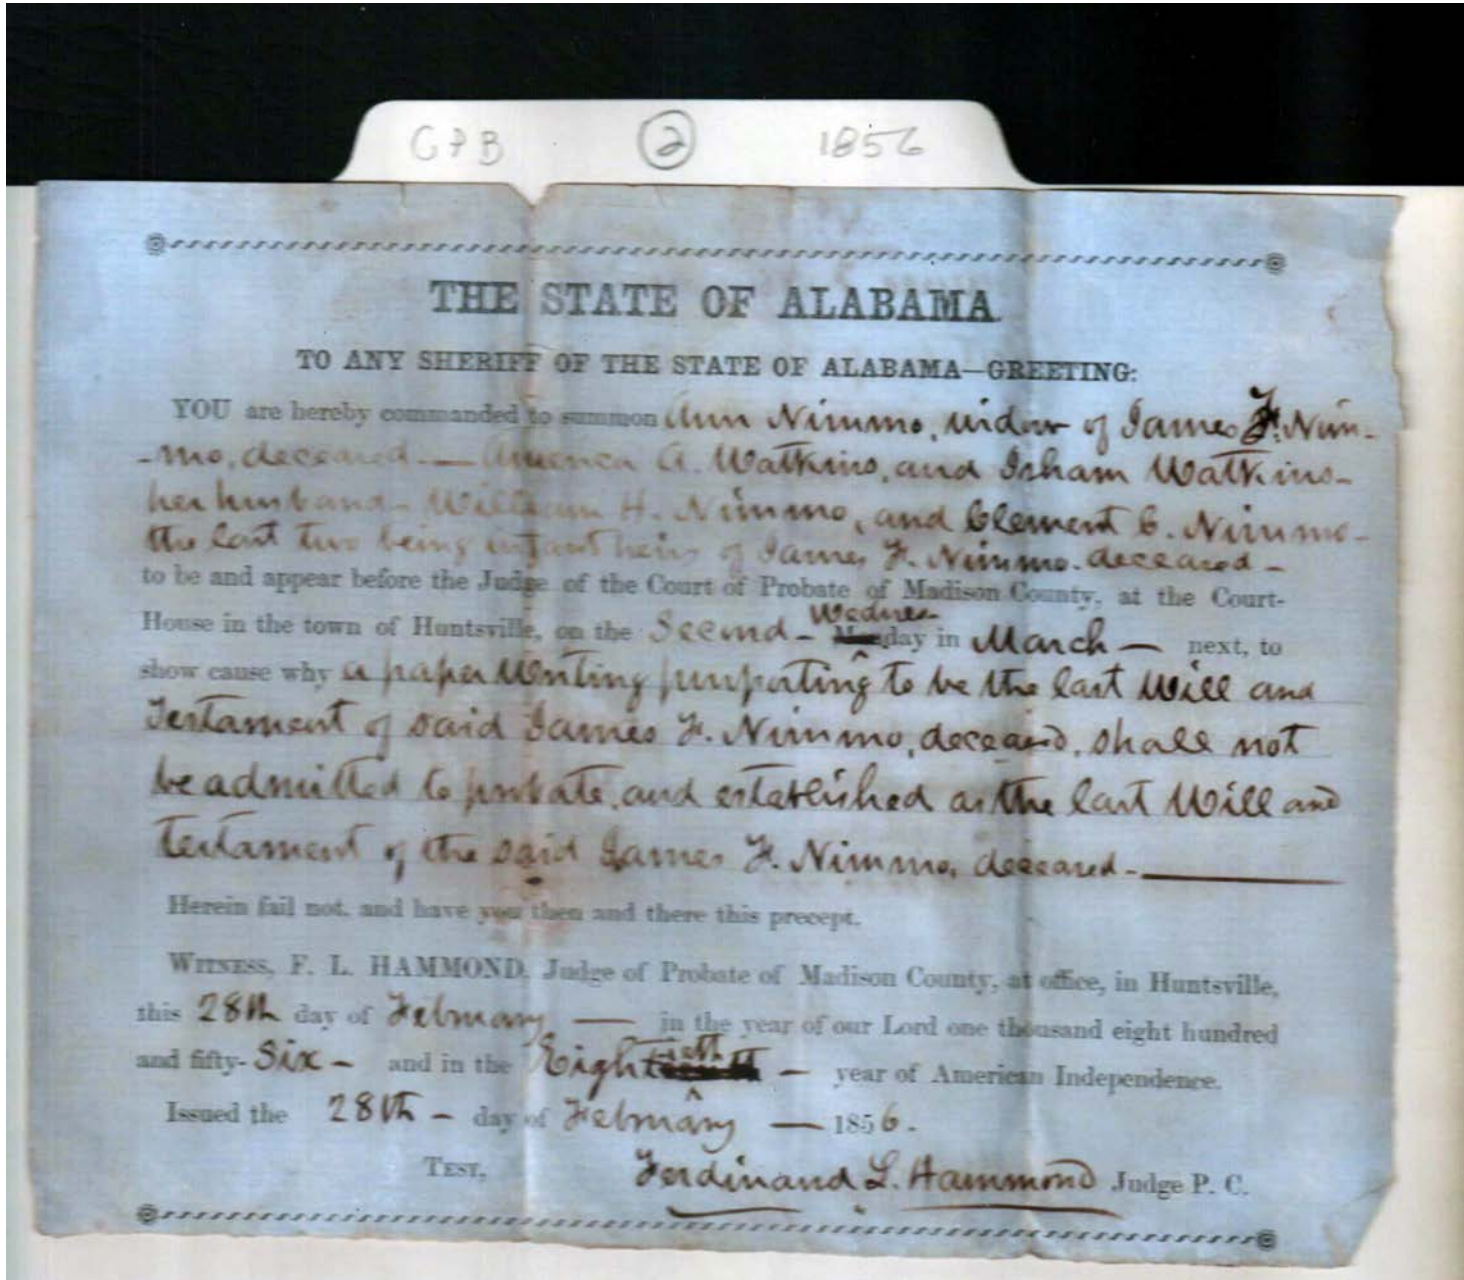 CPB 2 1856
THE STATE OF ALABAMA.
TO ANY SHERIFF OF THE STATE OF ALABAMA—GREETING:
YOU are hereby commanded to summon Ann Nimmo, widow of James F. Nim-
-mo, deceased — America A. Watkins, and Isham Watkins-
her husband- William H. Nimmo, and Clement C. Nimmo-
the last two being infant heirs of James F. Nimmo. deceased -
to be and appear before the Judge of the Court of Probate of Madison County, at the Court-
House in the town of Huntsville, on the Second - Wednesday in March — next, to
show cause why a paper Writing purporting to be the last Will and
Testament of said James F. Nimmo, deceased, shall not
be admitted to probate, and established as the last Will and
testament of the said James F. Nimmo, deceased -
Herein fail not, and have you then and there this precept.
WITNESS, F. L. HAMMOND, Judge of Probate of Madison County, at office, in Huntsville,
this 28th day of February — in the year of our Lord one thousand eight hundred
and fifty- Six - and in the Eightieth - year of American Independence.
Issued the 28th - day of February — 1856.
TEST, Ferdinand L. Hammond Judge P. C.